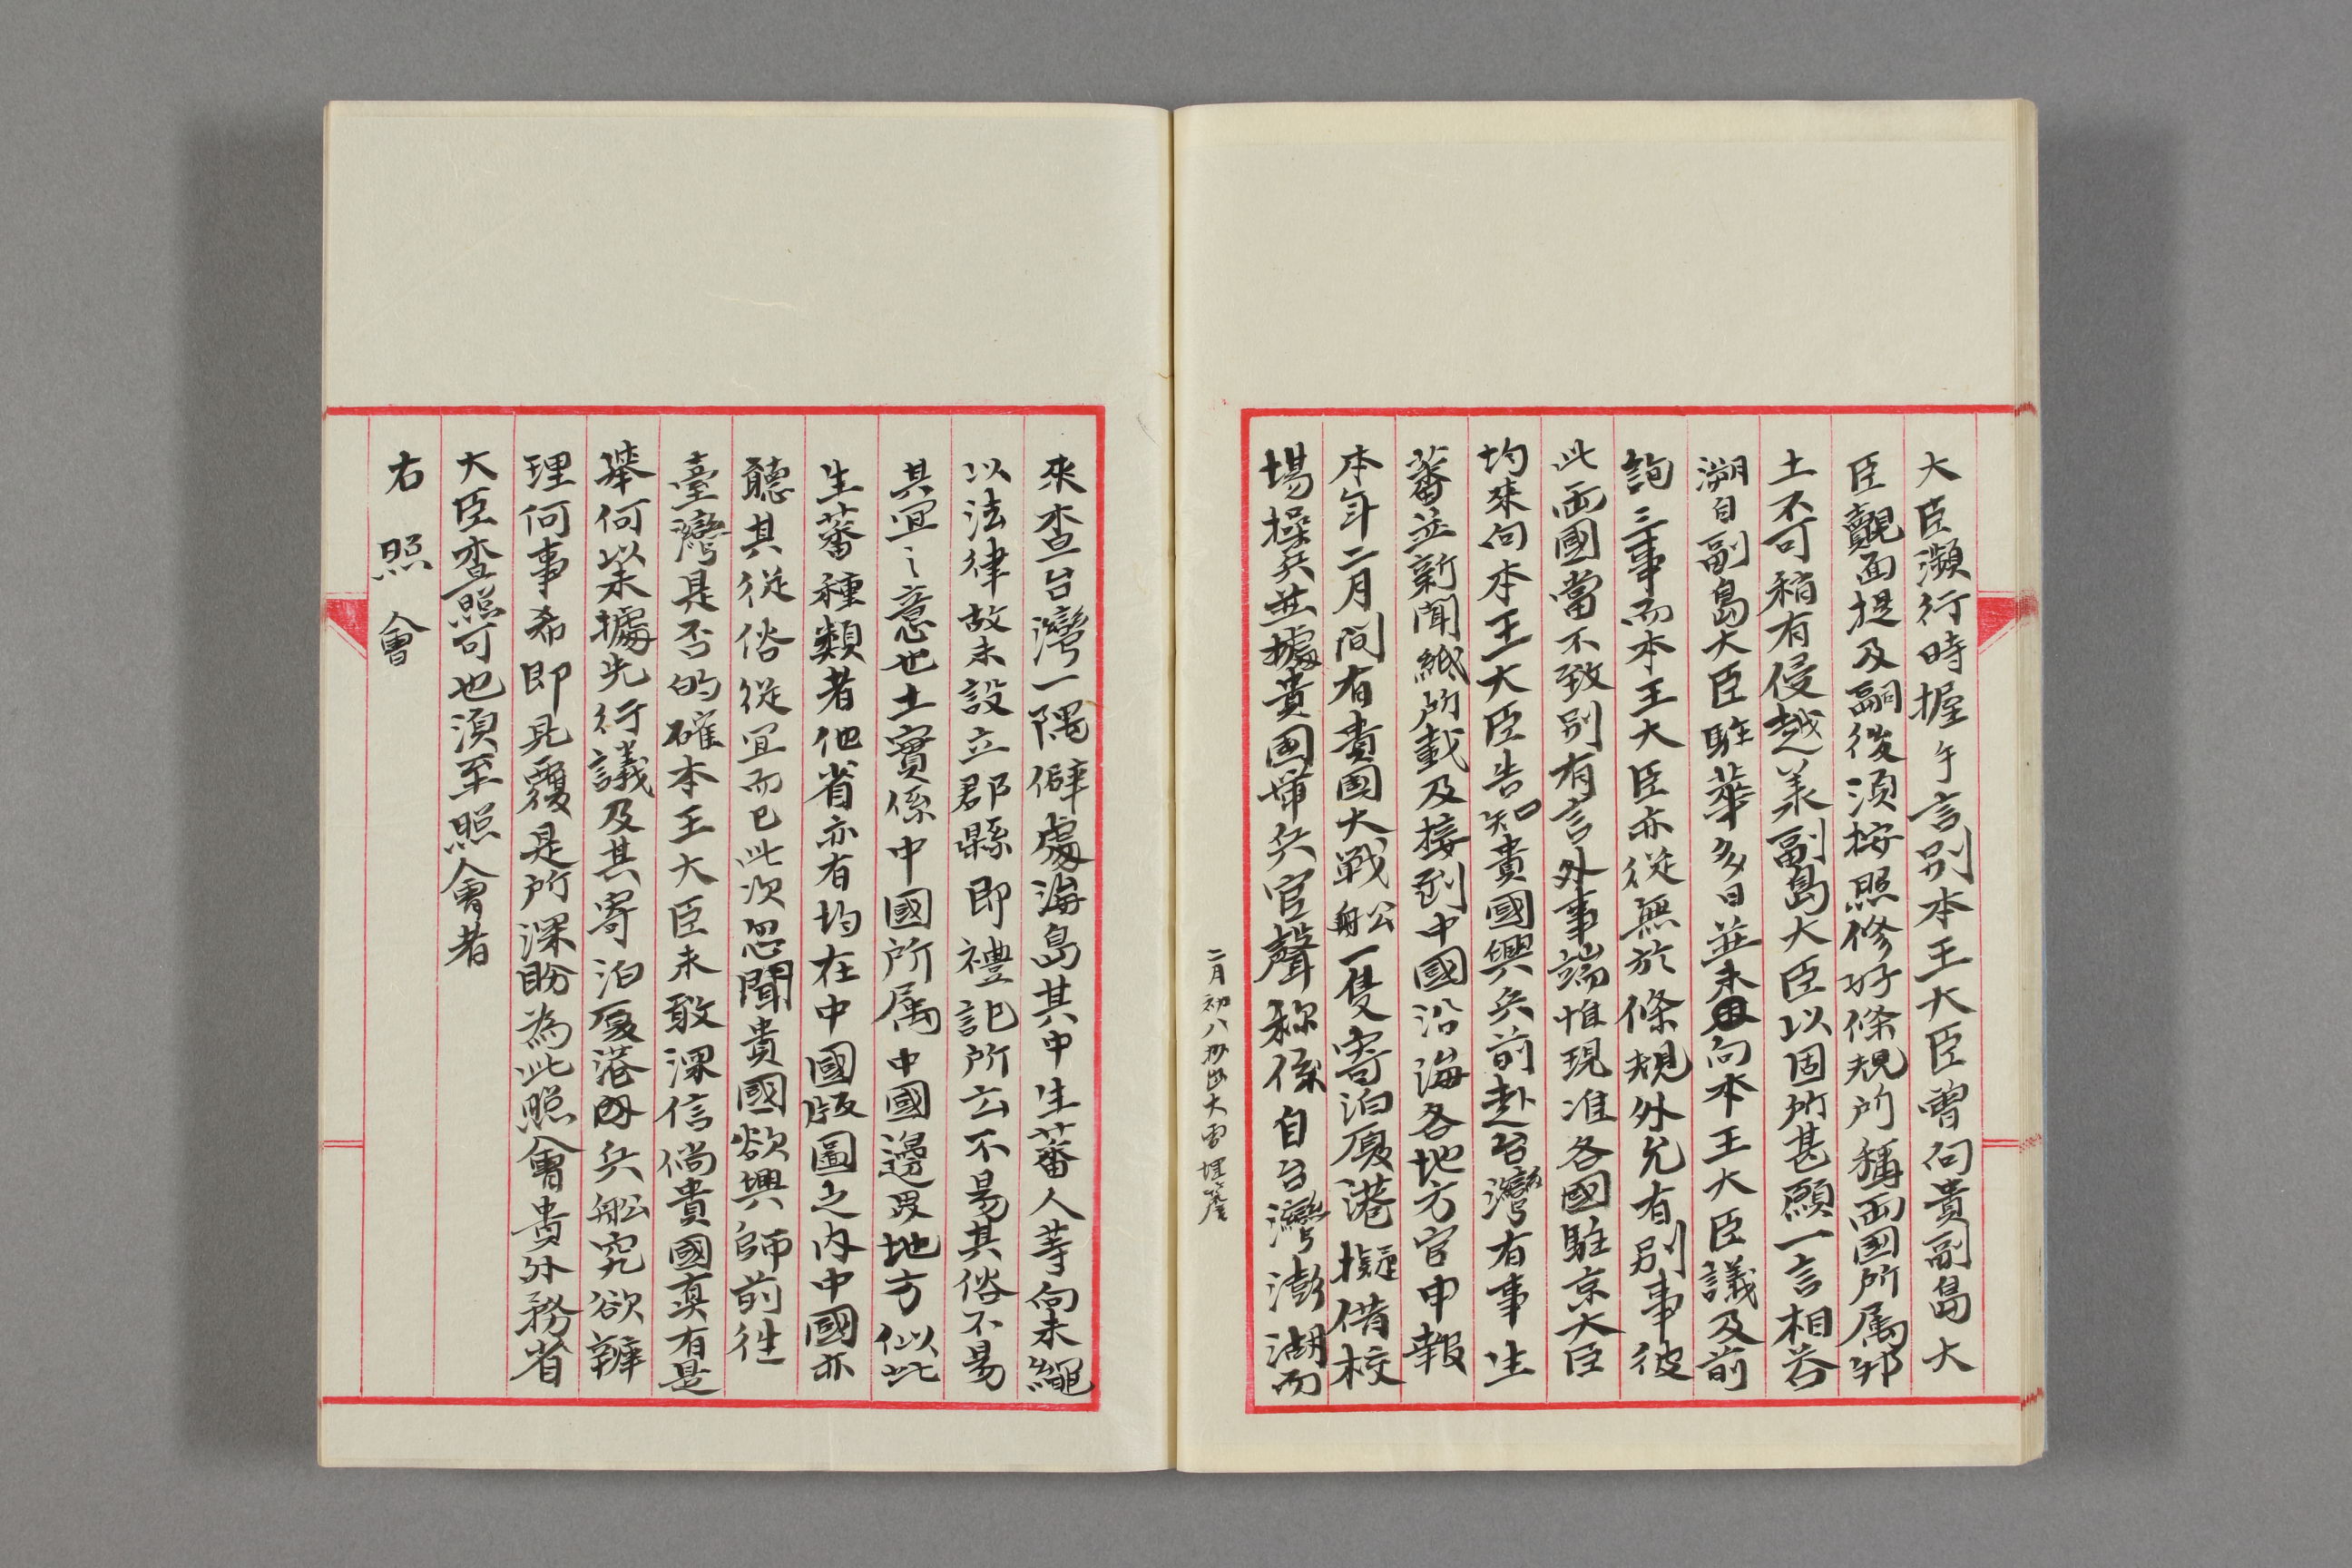 大臣瀕行時握手言別本王大臣曾向貴副島大
臣覿面提及嗣後須按照修好條規所稱兩國所属邦
土不可稍有侵越義副島大臣以固所甚願一言相答
溯自副島大臣駐華多日並未向本王大臣議及前
詢三事而本王大臣亦從無於條規外允有別事彼
此両國當不致別有言外事端惟現准各國駐京大臣
均來向本王大臣告知貴國興兵前赴台灣有事生
蕃並新聞紙所載及接到中國沿海各地方官申報
本年二月間有貴國大戦舩一隻寄泊厦港擬借校
場操兵並據貴国帯兵官聲称係自台灣澎湖而
二月初八
來查台灣一隅僻處海島其中生蕃人等向未繩
以法律故未設立郡縣即禮記所云不易其俗不易
其冝之意也土實係中國所属中國邊界地方似此
生蕃種類者他省亦有均在中國版圖之内中國亦
聽其從俗從冝而已此次忽聞貴國欲興師前徃
臺灣是否的確本王大臣未敢深信倘貴國真有是
舉何以未據先行議及其寄泊厦港兵舩究欲辦
理何事希即見覆是所深盼為此照會貴外務省
大臣查照可也須至照會者
右照會